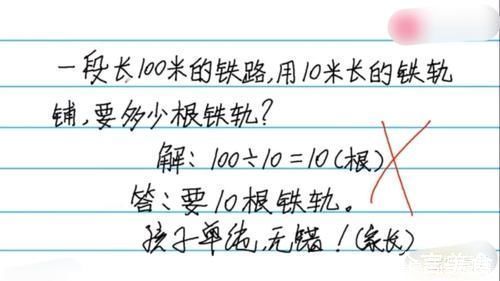 一段长100米的铁路,用10米长的铁轨
铺,要多少根铁轨?
解: 100÷10=10(根)
答:要10根铁轨。
孩子单纯,无错!(家长)